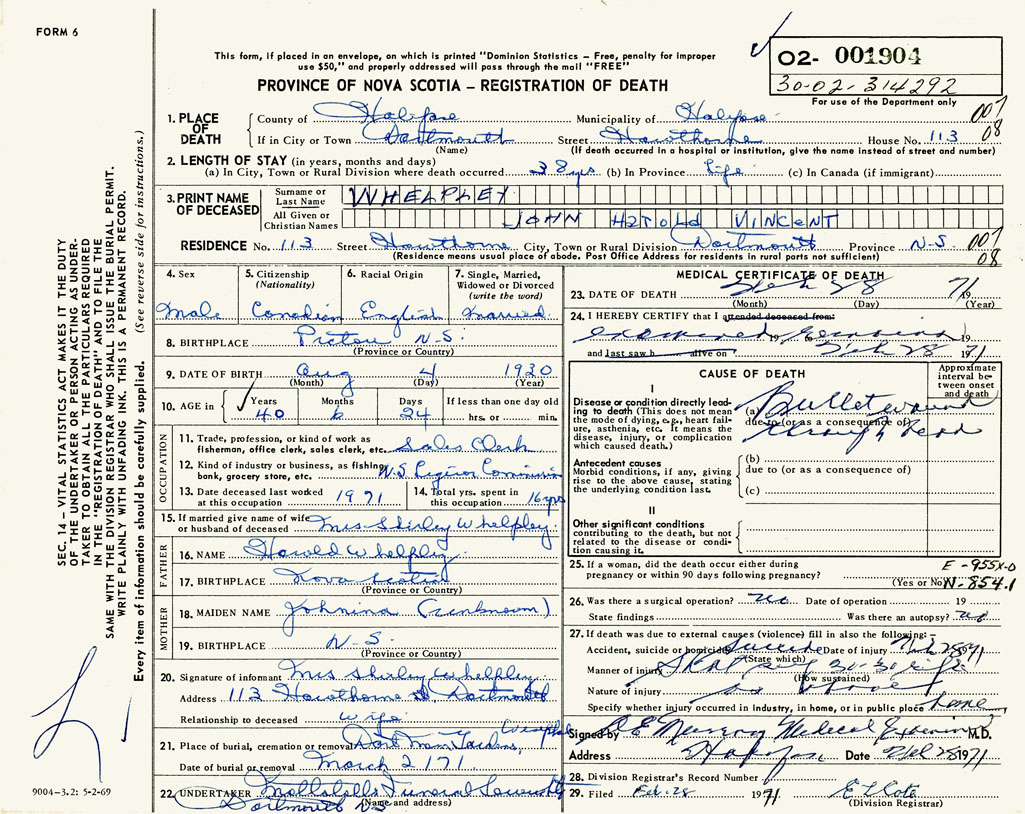 FORM 6
This form, if placed in an envelope, on which is printed "Dominion Statistics – Free, penalty for improper
use $50," and properly addressed will pass through the mail "FREE"
PROVINCE OF NOVA SCOTIA – REGISTRATION OF DEATH
O2- 001904
30-02-314292
For use of the Department only
007
08
1. PLACE OF DEATH
County of Halifax Municipality of Halifax
If in City or Town Dartmouth Street Hawthorne House No. 113
(Name) (If death occurred in a hospital or institution, give the name instead of street and number)
2. LENGTH OF STAY (in years, months and days)
(a) In City, Town or Rural Division where death occurred 38 yrs (b) In Province life (c) In Canada (if immigrant)
3. PRINT NAME OF DECEASED
Surname or Last Name WHELPLEY
All Given or Christian Names JOHN HarOld VINCENT
RESIDENCE No. 113 Street Hawthorne City, Town or Rural Division Dartmouth Province N-S
007
08
(Residence means usual place of abode. Post Office Address for residents in rural parts not sufficient)
4. Sex
Male
5. Citizenship (Nationality)
Canadian
6. Racial Origin
English
7. Single, Married, Widowed or Divorced (write the word)
Married
8. BIRTHPLACE Pictou N-S.
(Province or Country)
9. DATE OF BIRTH Aug 4 1930
(Month) (Day) (Year)
10. AGE in Years 40 Months 6 Days 24 If less than one day old
hrs. or min.
OCCUPATION
11. Trade, profession, or kind of work as
fisherman, office clerk, sales clerk, etc. Sales Clerk
12. Kind of industry or business, as fishing,
bank, grocery store, etc. N.S. Liquor Commission
13. Date deceased last worked
at this occupation 1971
14. Total yrs. spent in
this occupation 16 yrs
15. If married give name of wife
or husband of deceased Mrs Shirley Whelpley
FATHER
16. NAME Harold Whelpley
17. BIRTHPLACE Nova Scotia
(Province or Country)
MOTHER
18. MAIDEN NAME Johnina (unknown)
19. BIRTHPLACE N-S.
(Province or Country)
20. Signature of informant Mrs Shirley Whelpley
Address 113 Hawthorne St, Dartmouth
Relationship to deceased wife
21. Place of burial, cremation or removal Dart Mem Gardens,
Date of burial or removal March 2/71
22. UNDERTAKER Mattatalls Funeral
Dartmouth N-S
(Name and address)
MEDICAL CERTIFICATE OF DEATH
23. DATE OF DEATH Feb 28 71
(Month) (Day) (Year)
24. I HEREBY CERTIFY that I attended deceased from:
examined remains 19 19
and last saw h alive on Feb 28 1971
CAUSE OF DEATH
Approximate interval between onset and death
I
Disease or condition directly leading to death (This does not mean
the mode of dying, e.g., heart failure, asthenia, etc. It means the
disease, injury, or complication
which caused death.)
(a) Bullet wound
due to (or as a consequence of)
through head
Antecedent causes
Morbid conditions, if any, giving
rise to the above cause, stating
the underlying condition last.
(b)
due to (or as a consequence of)
(c)
II
Other significant conditions
contributing to the death, but not
related to the disease or condition causing it.
25. If a woman, did the death occur either during
pregnancy or within 90 days following pregnancy?
(Yes or No)
E-955X-0
N-854.1
26. Was there a surgical operation? no Date of operation 19
State findings Was there an autopsy? no
27. If death was due to external causes (violence) fill in also the following:–
Accident, suicide or homicide Suicide Date of injury Feb 28 1971
(State which)
Manner of injury Shot self 30-30 rifle
(How sustained)
Nature of injury as above
Specify whether injury occurred in industry, in home, or in public place home
Signed by Murray Medical Examiner M.D.
Address Halifax Date Feb 28 1971
28. Division Registrar's Record Number
29. Filed Feb. 28 1971
(Division Registrar)
SEC. 14 – VITAL STATISTICS ACT MAKES IT THE DUTY
OF THE UNDERTAKER OR PERSON ACTING AS UNDERTAKER TO OBTAIN ALL THE PARTICULARS REQUIRED
IN THE "REGISTRATION OF DEATH" AND TO FILE THE
SAME WITH THE DIVISION REGISTRAR WHO SHALL ISSUE THE BURIAL PERMIT.
WRITE PLAINLY WITH UNFADING INK. THIS IS A PERMANENT RECORD.
Every item of information should be carefully supplied. (See reverse side for instructions.)
9004-3.2: 5-2-69